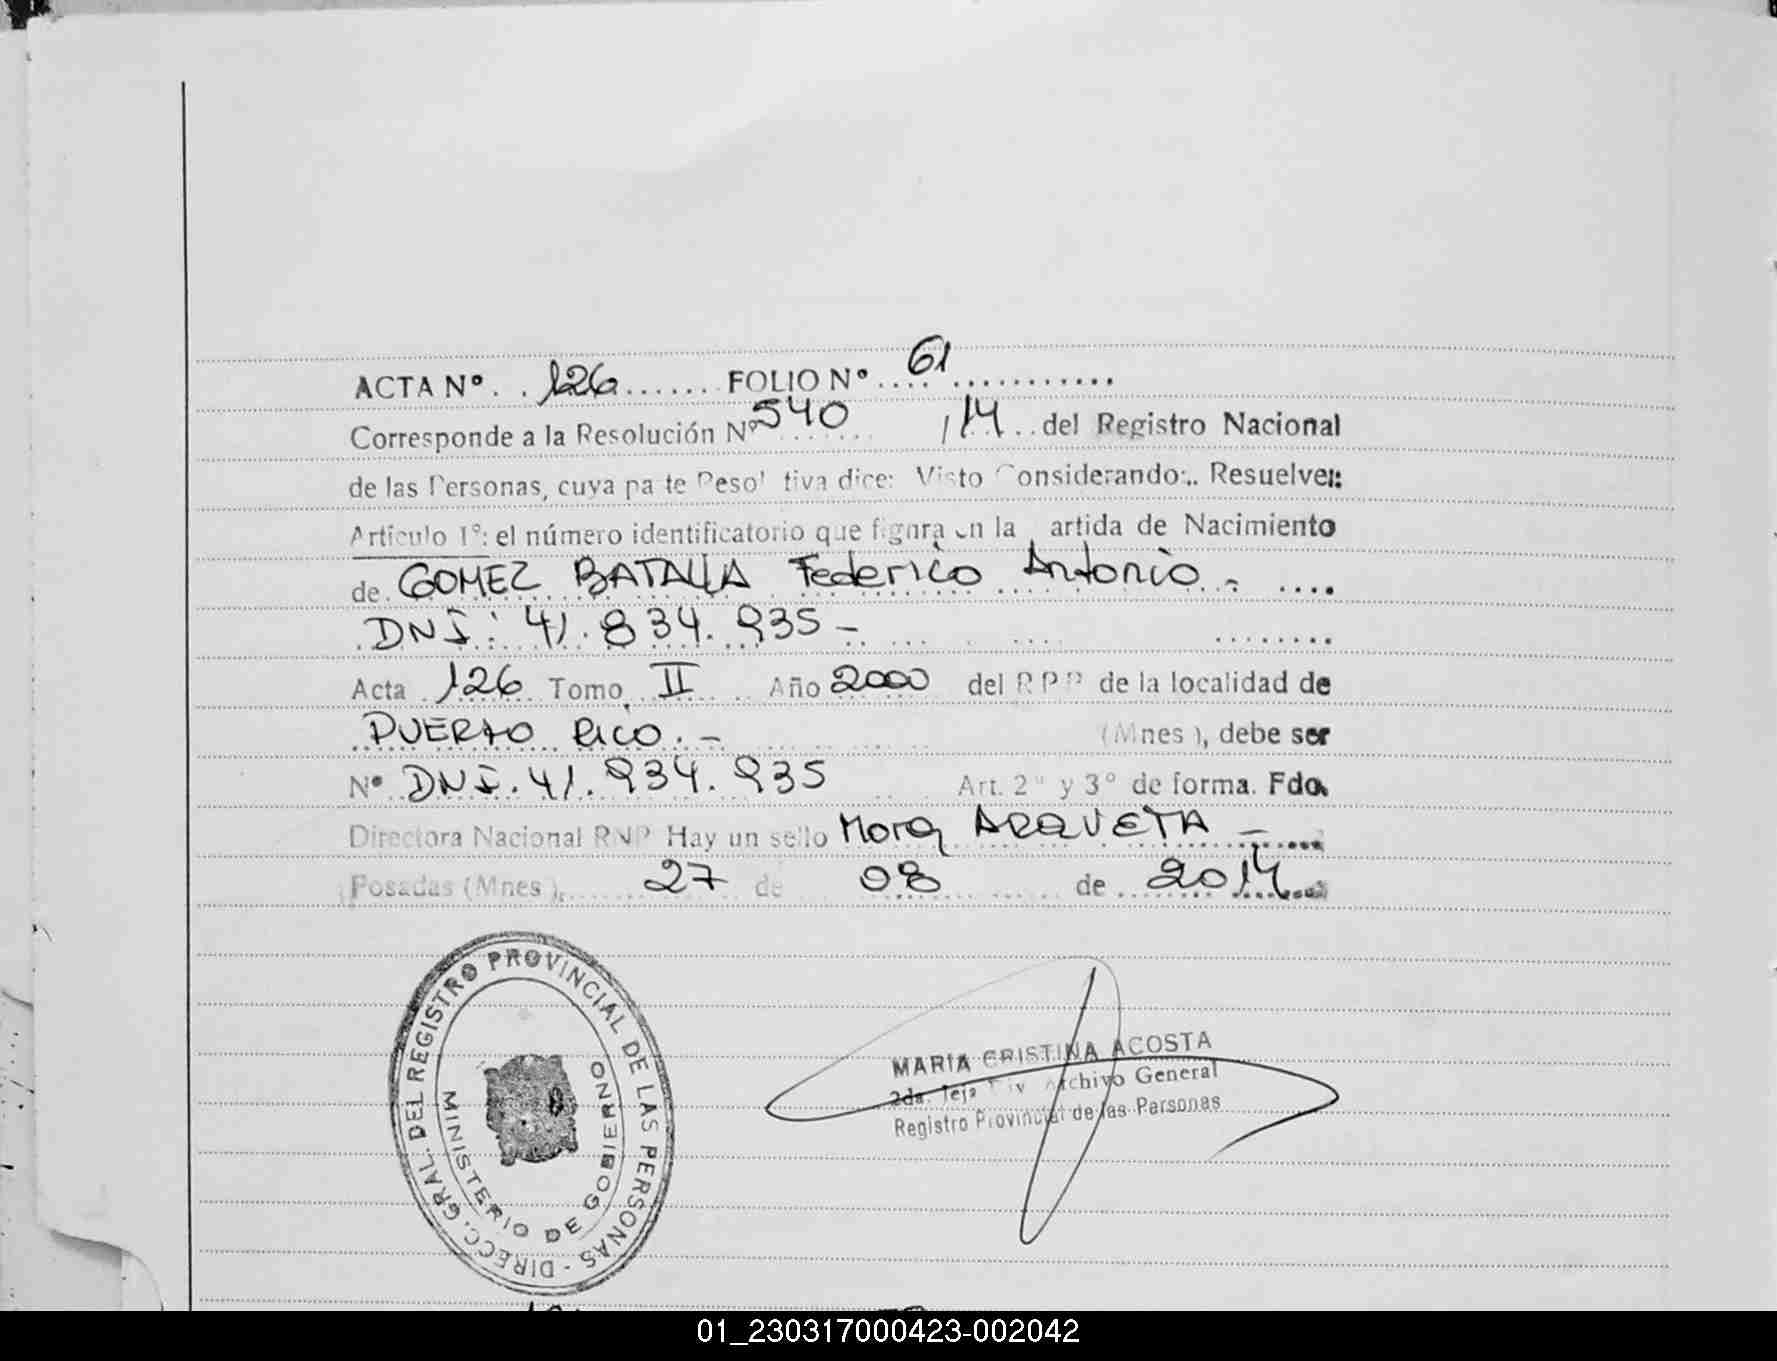 ACTA Nº. . 126....... FOLIO Nº.... 61 ...........
Corresponde a la Resolución Nº 540 ....... /14 . . del Registro Nacional
de las Personas, cuya pa te Reso' tiva dice: Visto Considerando:.. Resuelve:
Artículo 1º: el número identificatorio que figura en la artida de Nacimiento
de. GOMEZ BATALLA Federico Antonio.- ....
DNI: 41.834.935 -
Acta 126 Tomo II Año 2000 del RPP de la localidad de
PUERTO RICO.- (Mnes), debe ser
Nº DNI. 41.934.935 Art. 2º y 3º de forma. Fdo.
Directora Nacional RNP Hay un sello Mora ARQUETA -
Posadas (Mnes), 27 de 08 de 2014
DIRECC. GRAL. DEL REGISTRO PROVINCIAL DE LAS PERSONAS -
MINISTERIO DE GOBIERNO
MARIA CRISTINA ACOSTA
2da. Jefa Div. Archivo General
Registro Provincial de las Personas
01_230317000423-002042